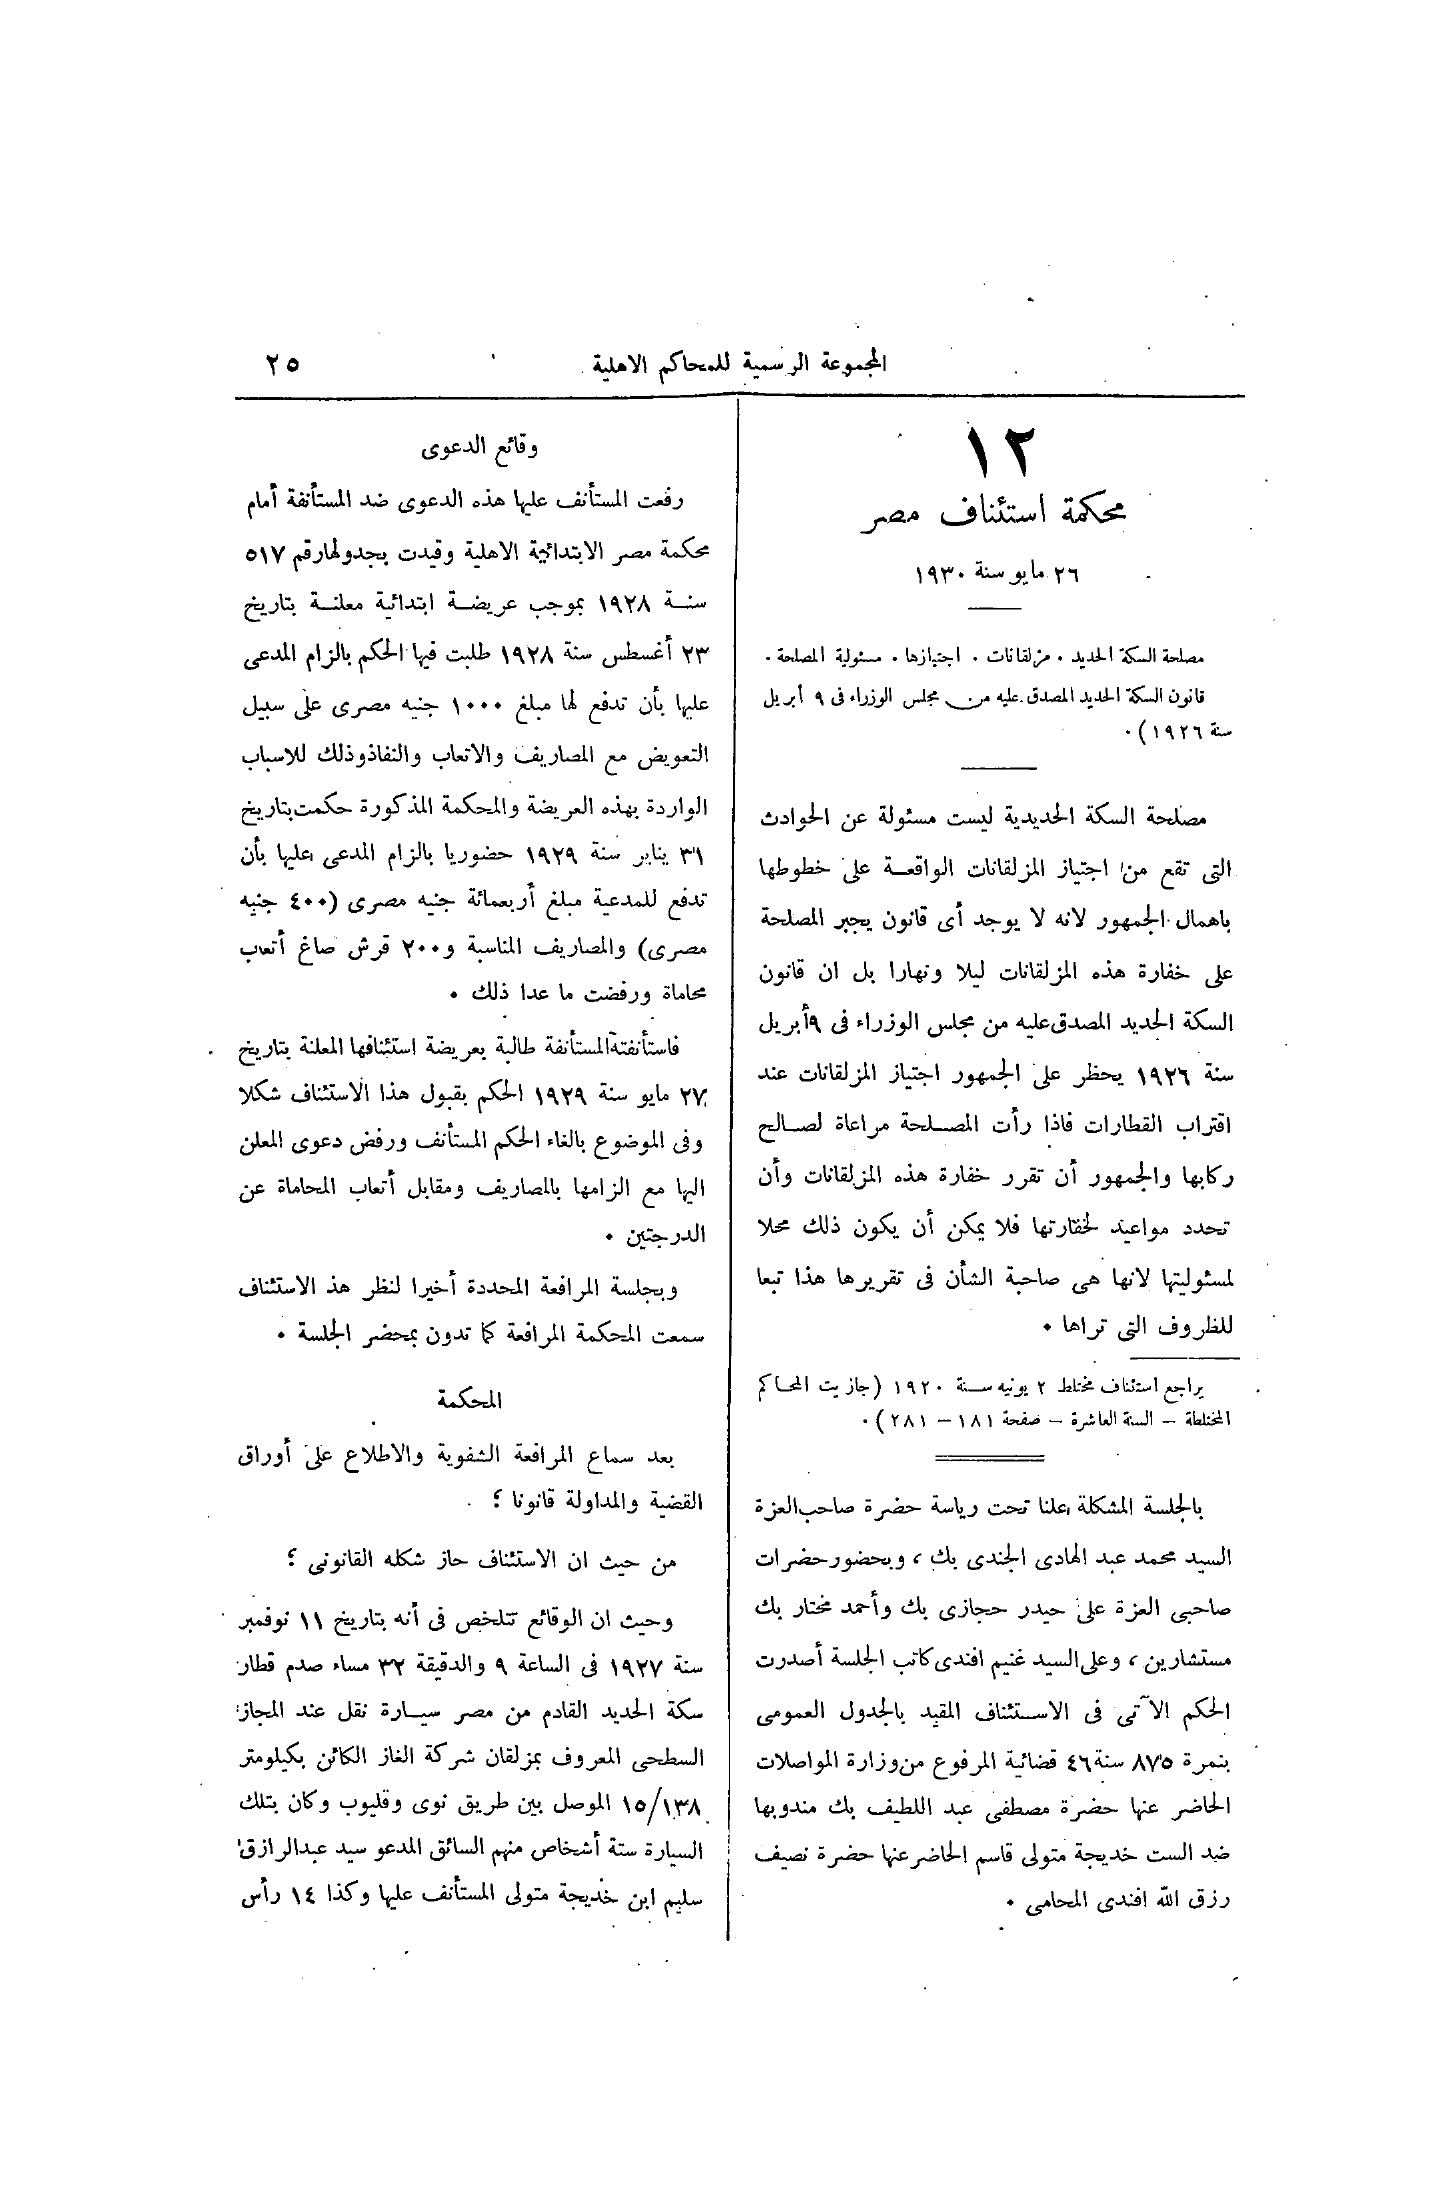 المجموعة الرسمية للمحاكم الاهلية
٢٥
١٢
محكمة استئناف مصر
٢٦ مايو سنة ١٩٣٠
مصلحة السكة الحديد . مزلقانات . اجتيازها . مسئولية المصلحة .
قانون السكة الحديد المصدق عليه من مجلس الوزراء فى ٩ أبريل
سنة ١٩٢٦) .
مصلحة السكة الحديدية ليست مسئولة عن الحوادث
التى تقع من اجتياز المزلقانات الواقعة على خطوطها
باهمال الجمهور لانه لا يوجد أى قانون يجبر المصلحة
على خفارة هذه المزلقانات ليلا ونهارا بل ان قانون
السكة الحديد المصدق عليه من مجلس الوزراء فى ٩ أبريل
سنة ١٩٢٦ يحظر على الجمهور اجتياز المزلقانات عند
اقتراب القطارات فاذا رأت المصلحة مراعاة لصالح
ركابها والجمهور أن تقرر خفارة هذه المزلقانات وأن
تحدد مواعيد لخفارتها فلا يمكن أن يكون ذلك محلا
لمسئوليتها لانها هى صاحبة الشأن فى تقريرها هذا تبعا
للظروف التى تراها .
يراجع استئناف مختلط ٢ يونيه سنة ١٩٢٠ (جازيت المحاكم
المختلطة – السنة العاشرة – صفحة ١٨١ – ٢٨١) .
بالجلسة المشكلة علنا تحت رياسة حضرة صاحب العزة
السيد محمد عبد الهادى الجندى بك ، وبحضور حضرات
صاحبى العزة على حيدر حجازى بك وأحمد مختار بك
مستشارين ، وعلى السيد غنيم افندى كاتب الجلسة أصدرت
الحكم الآتى فى الاستئناف المقيد بالجدول العمومى
بنمرة ٨٧٥ سنة ٤٦ قضائية المرفوع من وزارة المواصلات
الحاضر عنها حضرة مصطفى عبد اللطيف بك مندوبها
ضد الست خديجة متولى قاسم الحاضر عنها حضرة نصيف
رزق الله افندى المحامى .
وقائع الدعوى
رفعت المستأنف عليها هذه الدعوى ضد المستأنفة أمام
محكمة مصر الابتدائية الاهلية وقيدت بجدولها رقم ٥١٧
سنة ١٩٢٨ بموجب عريضة ابتدائية معلنة بتاريخ
٢٣ أغسطس سنة ١٩٢٨ طلبت فيها الحكم بالزام المدعى
عليها بأن تدفع لها مبلغ ١٠٠٠ جنيه مصرى على سبيل
التعويض مع المصاريف والاتعاب والنفاذ وذلك للاسباب
الواردة بهذه العريضة والمحكمة المذكورة حكمت بتاريخ
٣١ يناير سنة ١٩٢٩ حضوريا بالزام المدعى عليها بأن
تدفع للمدعية مبلغ أربعمائة جنيه مصرى (٤٠٠ جنيه
مصرى) والمصاريف المناسبة و٢٠٠ قرش صاغ أتعاب
محاماة ورفضت ما عدا ذلك .
فاستأنفته المستأنفة طالبة بعريضة استئنافها المعلنة بتاريخ
٢٧ مايو سنة ١٩٢٩ الحكم بقبول هذا الاستئناف شكلا
وفى الموضوع بالغاء الحكم المستأنف ورفض دعوى المعلن
اليها مع الزامها بالمصاريف ومقابل أتعاب المحاماة عن
الدرجتين .
وبجلسة المرافعة المحددة أخيرا لنظر هذ الاستئناف
سمعت المحكمة المرافعة كما تدون بمحضر الجلسة .
المحكمة
بعد سماع المرافعة الشفوية والاطلاع على أوراق
القضية والمداولة قانونا ؛
من حيث ان الاستئناف حاز شكله القانونى ؛
وحيث ان الوقائع تتلخص فى أنه بتاريخ ١١ نوفمبر
سنة ١٩٢٧ فى الساعة ٩ والدقيقة ٣٢ مساء صدم قطار
سكة الحديد القادم من مصر سيارة نقل عند المجاز
السطحى المعروف بمزلقان شركة الغاز الكائن بكيلومتر
١٥/١٣٨ الموصل بين طريق نوى وقليوب وكان بتلك
السيارة ستة أشخاص منهم السائق المدعو سيد عبدالرازق
سليم ابن خديجة متولى المستأنف عليها وكذا ١٤ رأس